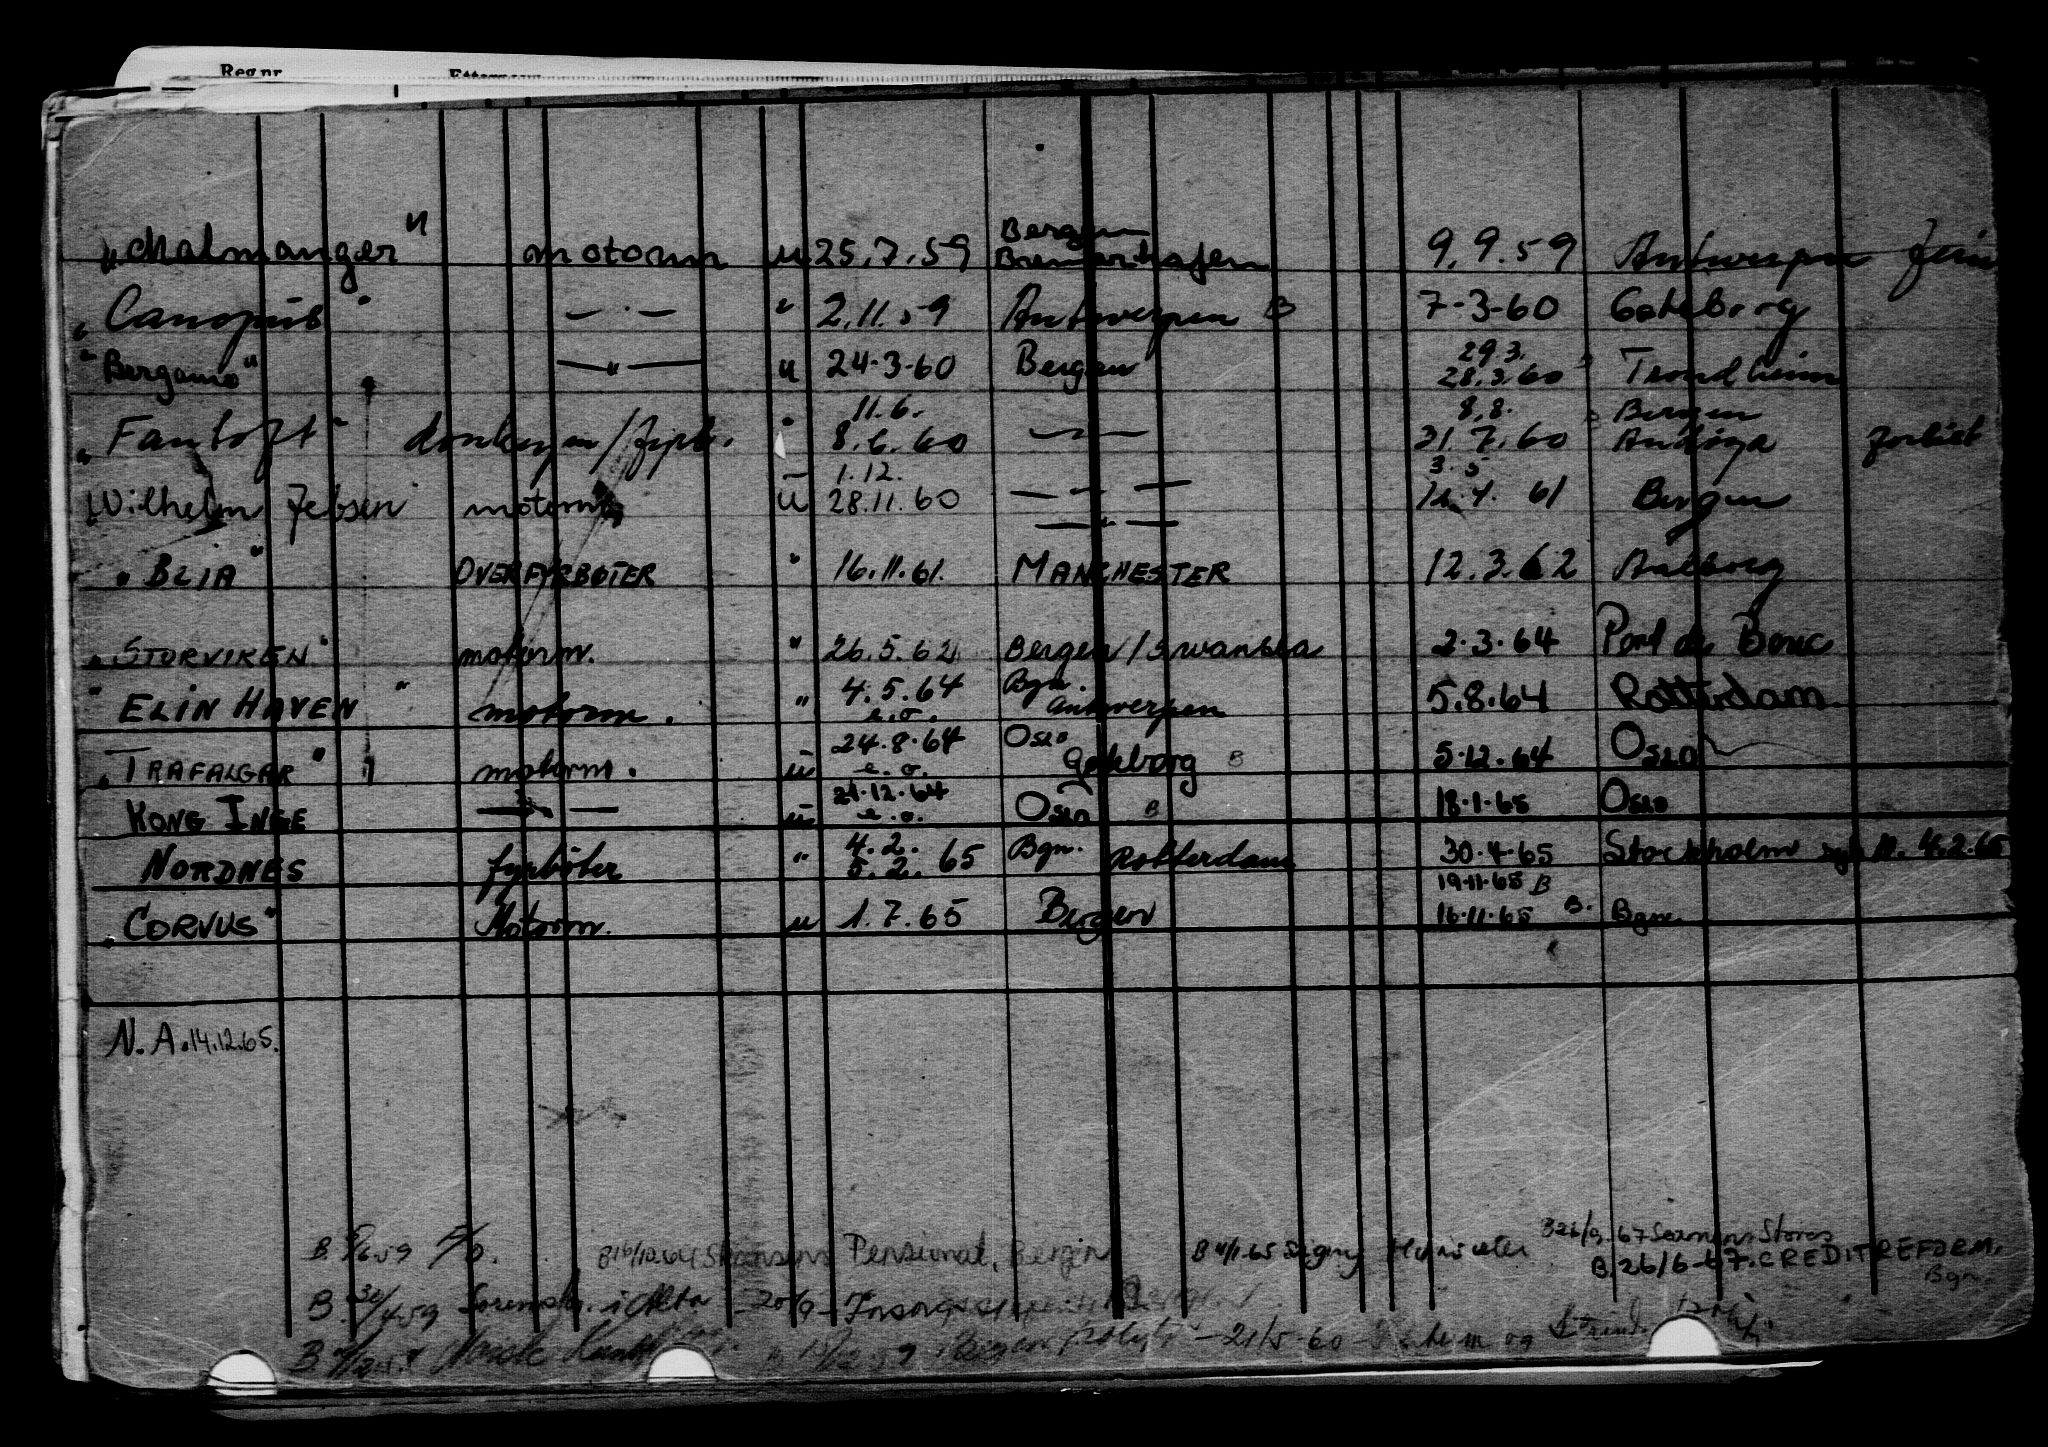 Reg.nr.
"Malmanger" motorm u 25.7.59 Bergen Bremerhafen 9.9.59 Antwerpen ferie
"Canopus" — · — " 2.11.59 Antwerpen B 7-3-60 Goteborg
"Bergamo" — " — u 24.3.60 Bergen 29.3. 28.3.60 Trondheim
"Fantoft" donkeym/fyrb. " 11.6. 8.6.60 — " — 8.8. 31.7.60 Bergen Andöya forlist
"Wilhelm Jebsen motorm u 1.12. 28.11.60 — " — 3.5 61 Bergen
— " —
"BLIA" OVERFYRBØTER " 16.11.61. MANCHESTER 12.3.62 Aalborg
"STORVIKEN" motorm. " 26.5.62 Bergen/Swansea 2.3.64 Port de Bouc
"ELIN HAVEN" motorm. " 4.5.64 e.o. Bgn. Antwerpen 5.8.64 Rotterdam
"TRAFALGAR" motorm. u 24.8.64 e.o. Oslo Goteborg B 5.12.64 Oslo
KONG INGE — " — u 21.12.64 e.o. Oslo B 18.1.65 Oslo
NORDNES fyrbøter " 4.2. 5.2. 65 Bgn. Rotterdam 30.4.65 Stockholm 4.2.65
"CORVUS" Motorm. u 1.7.65 Bergen 19.11.65 B 16.11.65 B. Bgn.
N.A. 14.12.65.
B 59 B 16/10.64 Skansen Pensjonat, Bergen B 4/1.65 Signy B 26/9.67 Seamens Stores
B. 26/6-67. CREDITREFORM. Bgn.
B. 4.59 i Alta
B - 21/5-60 - og